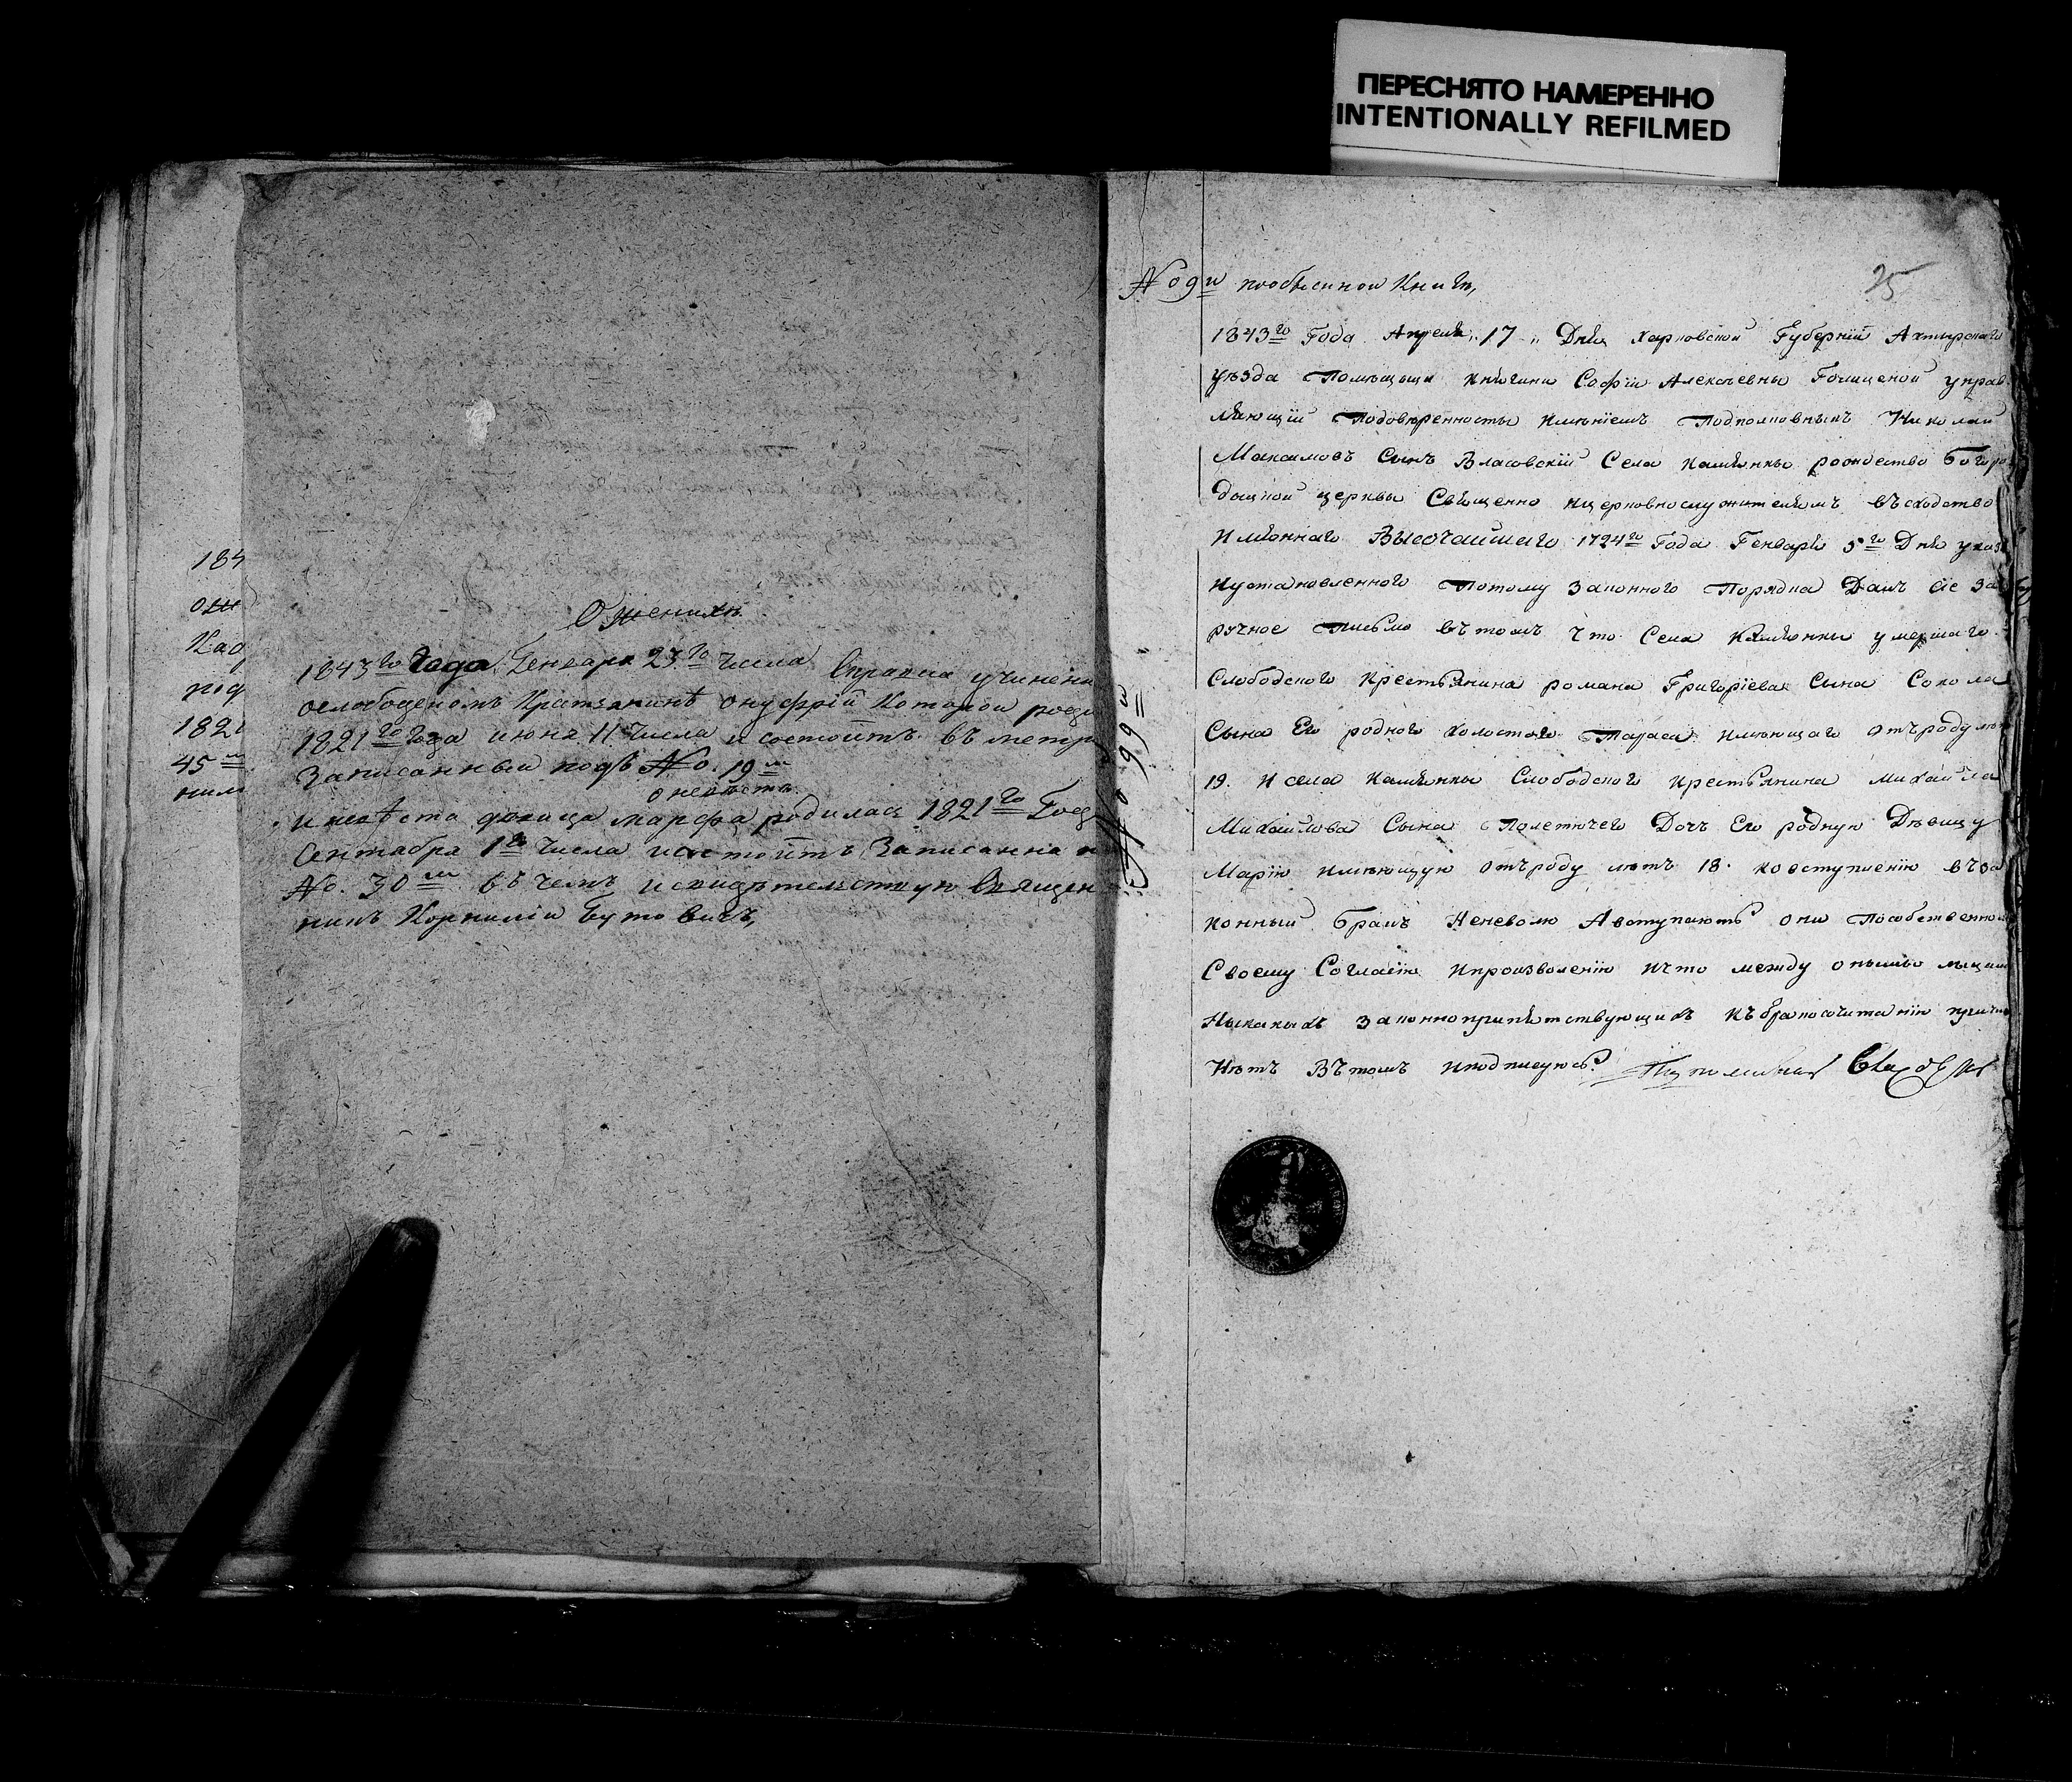 ПЕРЕСНЯТО НАМЕРЕННО
INTENTIONALLY REFILMED
184
ож
Кад
под
1821
45
О женихѣ
1843го Года Генваря 23го числа Справка учинена
Онуфрій Которой роди
1821го Года июня 11 числа и состоитъ въ метри
Записанный подъ No. 19м
о невѣсте
и невѣста девица марфа родилась 1821го Года
Сентября 1го числа и состоитъ Записанна п
No. 30м въ чемъ и свидѣтельствую Священ
никъ Корнилій Бутовичъ,
25
No 9й пообыскной Книгѣ,
1843го Года Апреля „17„ Дня Харковской Губерніи Ахтырскаго
уѣзда Помѣщицы Княгини Софіи Алексѣевны Голицыной управ
ляющій Подовѣренносты Имѣніемъ Подполковныкъ Николай
Максимовъ Сынъ Власовскій Села Камянкы рождества Богоро
дычной церквы Священно ицерковнослужителямъ въсходство
Имяннаго Высочайшаго 1724го Года Генваря 5го Дня указа
Иустановленного Потому Законного Порядка Далъ Сіе За
ручное Письмо вътомъ Что Села Камянки умершаго
Слободского Крестьянина романа Григоріева Сына Сокола
Сына Его родного Холостого Тараса имѣющаго отъроду лѣт
19. И села Камянки Слободского Крестьянина Михайла
Михайлова Сына Полетючего Дочъ Его родную Дѣвицу
Марію имѣющую отъроду лѣтъ 18. ковступленію въза
конный Бракъ Неневолю Авступаютъ они Пособственном
Своему Согласію Ипроизволенію Ичто между онымы лыцам
Ныкакыхъ законноприпятствующихъ Къбракосочитанію причин
Нѣтъ Вътомъ Иподписуюсь.
No 99й